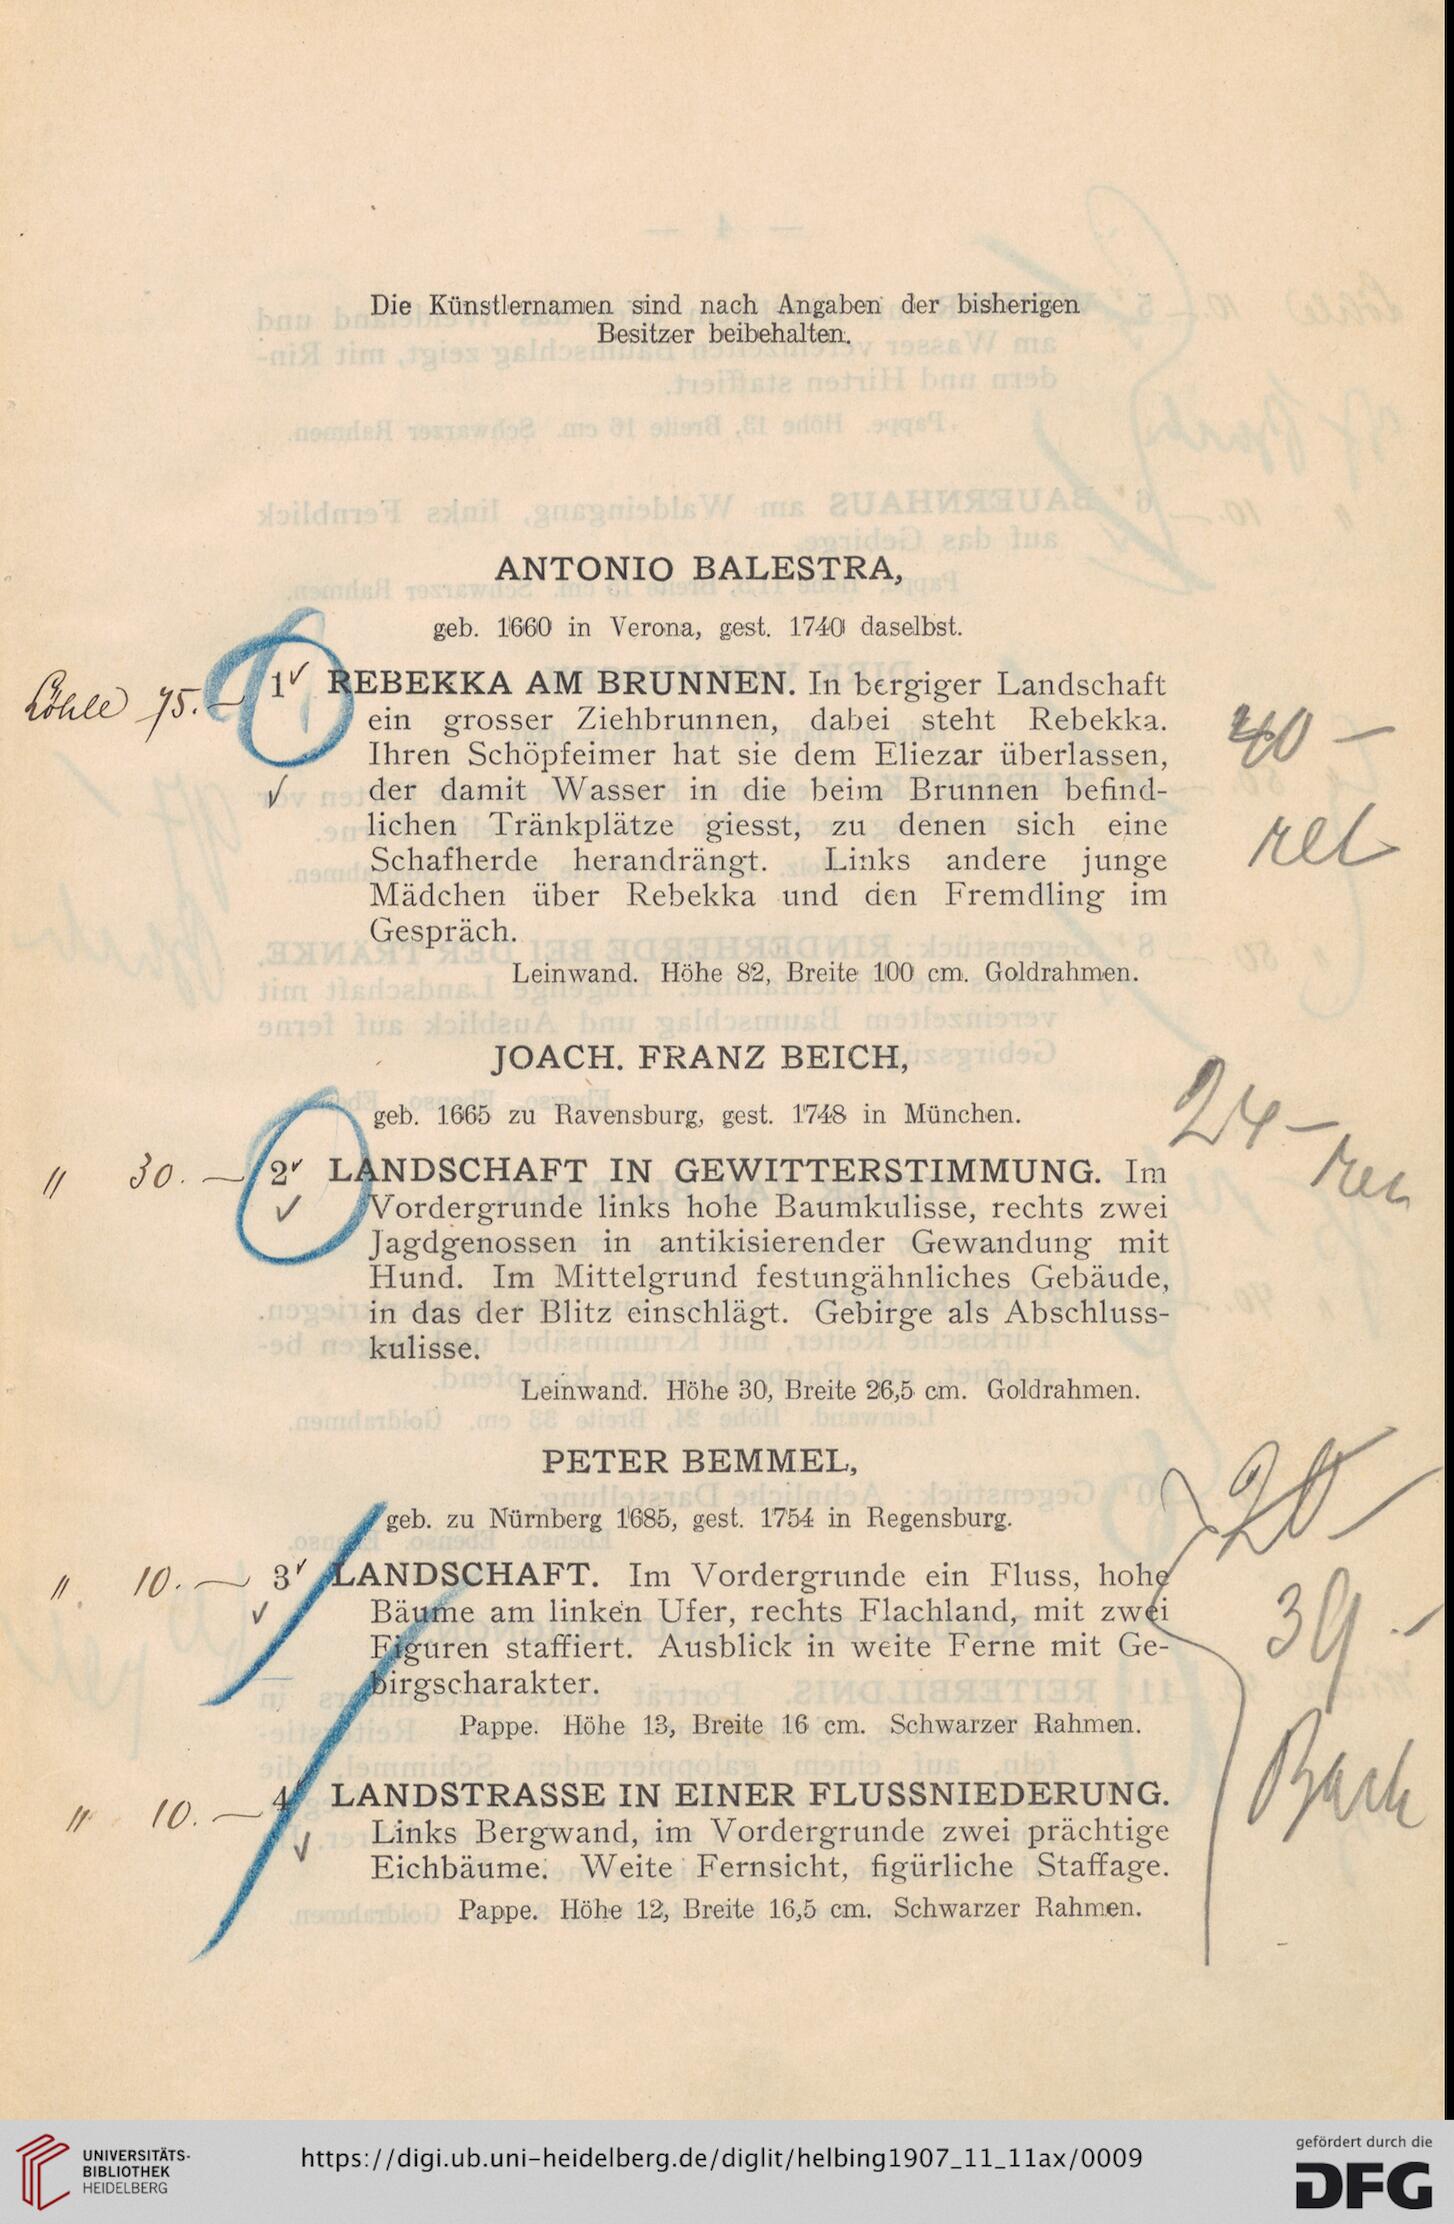 Die Künstlernamen sind nach Angaben der bisherigen
Besitzer beibehalten.
ANTONIO BALESTRA,
geb. 1660 in Verona, gest. 1740 daselbst.
Löhle 75.— 1 REBEKKA AM BRUNNEN. In bergiger Landschaft
ein grosser Ziehbrunnen, dabei steht Rebekka.
40 —
Ihren Schöpfeimer hat sie dem Eliezar überlassen,
der damit Wasser in die beim Brunnen befind-
lichen Tränkplätze giesst, zu denen sich eine
ret
Schafherde herandrängt. Links andere junge
Mädchen über Rebekka und den Fremdling im
Gespräch.
Leinwand. Höhe 82, Breite 100 cm. Goldrahmen.
JOACH. FRANZ BEICH,
geb. 1665 zu Ravensburg, gest. 1748 in München.
24 —
" 30. — 2 LANDSCHAFT IN GEWITTERSTIMMUNG. Im
Vordergrunde links hohe Baumkulisse, rechts zwei
Jagdgenossen in antikisierender Gewandung mit
Hund. Im Mittelgrund festungähnliches Gebäude,
in das der Blitz einschlägt. Gebirge als Abschluss-
kulisse.
Leinwand. Höhe 30, Breite 26,5 cm. Goldrahmen.
PETER BEMMEL,
geb. zu Nürnberg 1685, gest. 1754 in Regensburg.
20 —
" 10. — 3 LANDSCHAFT. Im Vordergrunde ein Fluss, hohe
Bäume am linken Ufer, rechts Flachland, mit zwei
39.-
Figuren staffiert. Ausblick in weite Ferne mit Ge-
birgscharakter.
Pappe. Höhe 13, Breite 16 cm. Schwarzer Rahmen.
" 10. — 4 LANDSTRASSE IN EINER FLUSSNIEDERUNG.
Links Bergwand, im Vordergrunde zwei prächtige
Eichbäume. Weite Fernsicht, figürliche Staffage.
Pappe. Höhe 12, Breite 16,5 cm. Schwarzer Rahmen.
UNIVERSITÄTS-
BIBLIOTHEK
HEIDELBERG
https://digi.ub.uni-heidelberg.de/diglit/helbing1907_11_11ax/0009
gefördert durch die
DFG